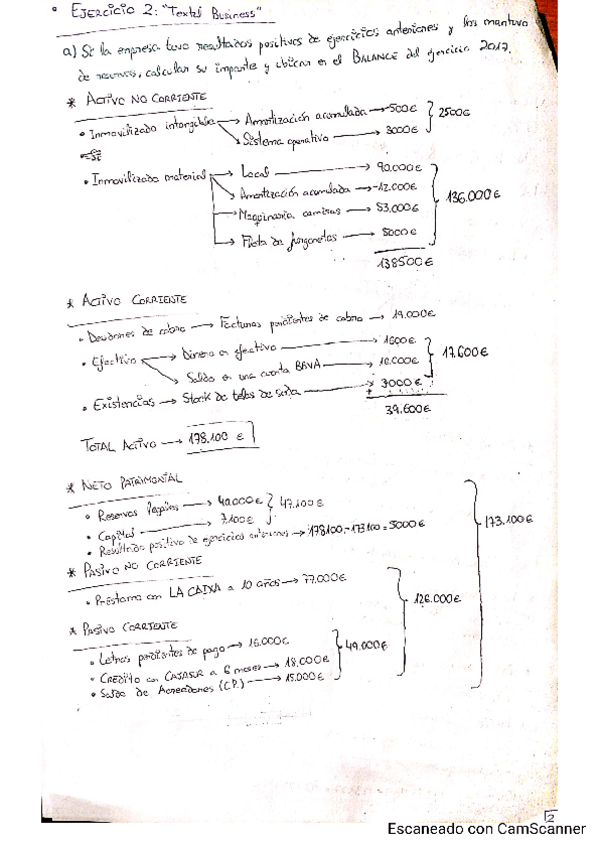 • EJERCICIO 2: "Textil Business"
a) Si la empresa tuvo resultados positivos de ejercicios anteriores y los mantuvo
de reservas, calcular su importe y ubicar en el BALANCE del ejercicio 2017.
* ACTIVO NO CORRIENTE
• Inmovilizado intangible → Amortización acumulada → -500€
→ Sistema operativo → 3000€ } 2500€
• Inmovilizado material → Local → 90.000€
→ Amortización acumulada → -12.000€
→ Maquinaria camisas → 53.000€ } 136.000€
→ Flota de furgonetas → 5000€
138500€
* ACTIVO CORRIENTE
• Deudores de cobro → Facturas pendientes de cobro → 19.000€
• Efectivo → Dinero en efectivo → 1600€
→ Saldo en una cuenta BBVA → 16.000€ } 17.600€
• Existencias → Stock de telas de seda → 3000€
39.600€
TOTAL ACTIVO → 178.100 €
* NETO PATRIMONIAL
• Reservas legales → 40.000€
• Capital → 7.100€ } 47.100€
• Resultado positivo de ejercicios anteriores → 178100 - 173100 = 5000€
173.100€
* PASIVO NO CORRIENTE
• Préstamo con LA CAIXA a 10 años → 77.000€
126.000€
* PASIVO CORRIENTE
• Letras pendientes de pago → 16.000€
• CRÉDITO con CAJASUR a 6 meses → 18.000€ } 49.000€
• Saldo de Acreedores (C.P.) → 15.000€
2
Escaneado con CamScanner